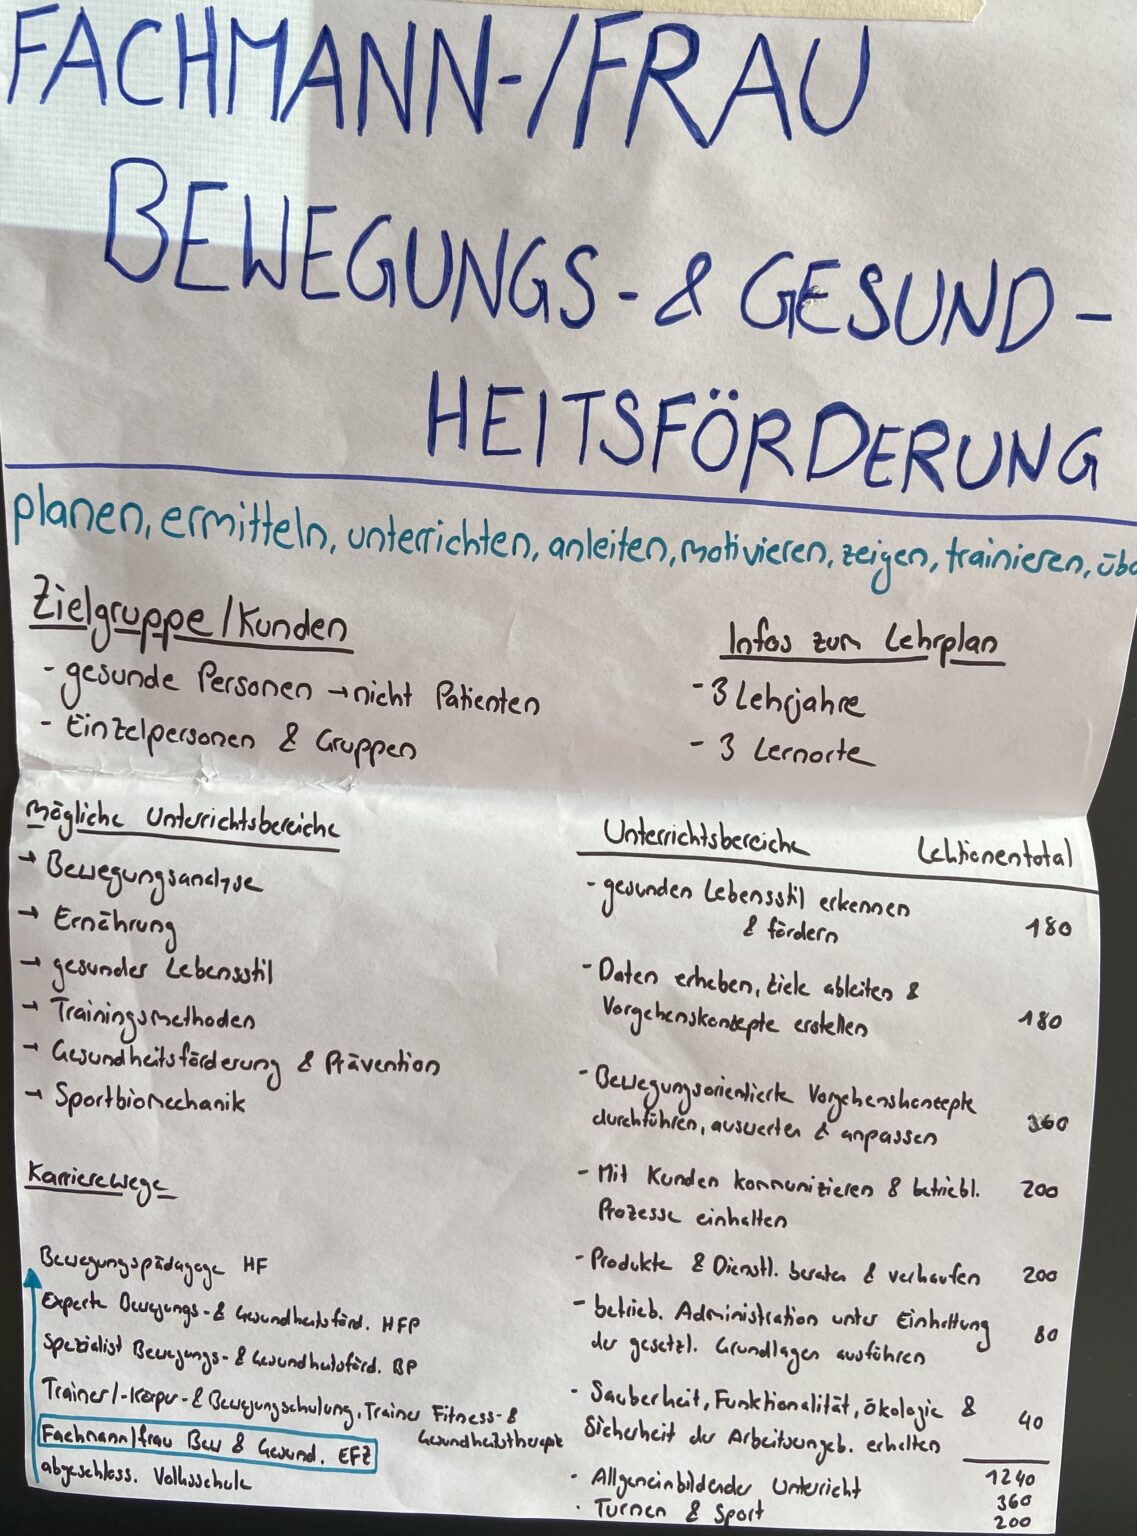 FACHMANN-/FRAU
BEWEGUNGS- & GESUND-
HEITSFÖRDERUNG
planen, ermitteln, unterrichten, anleiten, motivieren, zeigen, trainieren, übe
Zielgruppe/Kunden
- gesunde Personen → nicht Patienten
- Einzelpersonen & Gruppen
Infos zum Lehrplan
- 3 Lehrjahre
- 3 Lernorte
Mögliche Unterrichtsbereiche
→ Bewegungsanalyse
→ Ernährung
→ gesunder Lebensstil
→ Trainingsmethoden
→ Gesundheitsförderung & Prävention
→ Sportbiomechanik
Karrierewege
Bewegungspädagoge HF
Experte Bewegungs- & Gesundheitsförd. HFP
Spezialist Bewegungs- & Gesundheitsförd. BP
Trainer/-Körper- & Bewegungschulung, Trainer Fitness- &
Gesundheitstherapie
Fachmann/frau Bew & Gesund. EFZ
abgeschloss. Volksschule
Unterrichtsbereiche Lektionentotal
- gesunden Lebensstil erkennen
& fördern 180
- Daten erheben, Ziele ableiten &
Vorgehenskonzepte erstellen 180
- Bewegungsorientierte Vorgehenskonzepte
durchführen, auswerten & anpassen 360
- Mit Kunden kommunizieren & betriebl. 200
Prozesse einhalten
- Produkte & Dienstl. beraten & verkaufen 200
- betrieb. Administration unter Einhaltung 80
der gesetzl. Grundlagen ausführen
- Sauberkeit, Funktionalität, ökologie & 40
Sicherheit der Arbeitsumgeb. erhalten
1240
- Allgemeinbildender Unterricht 360
- Turnen & Sport 200